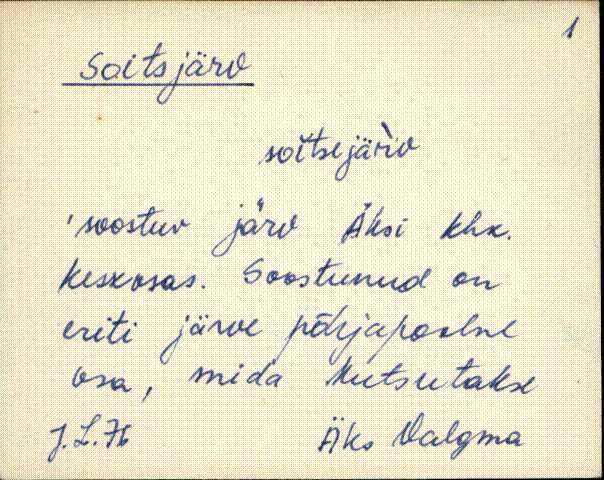 1
Soitsjärv
soitsejäŕv
'soostuv järv Äksi khk.
keskosas. Soostunud on
eriti järve põhjapoolne
osa, mida kutsutakse
J.L.76 Äks Valgma